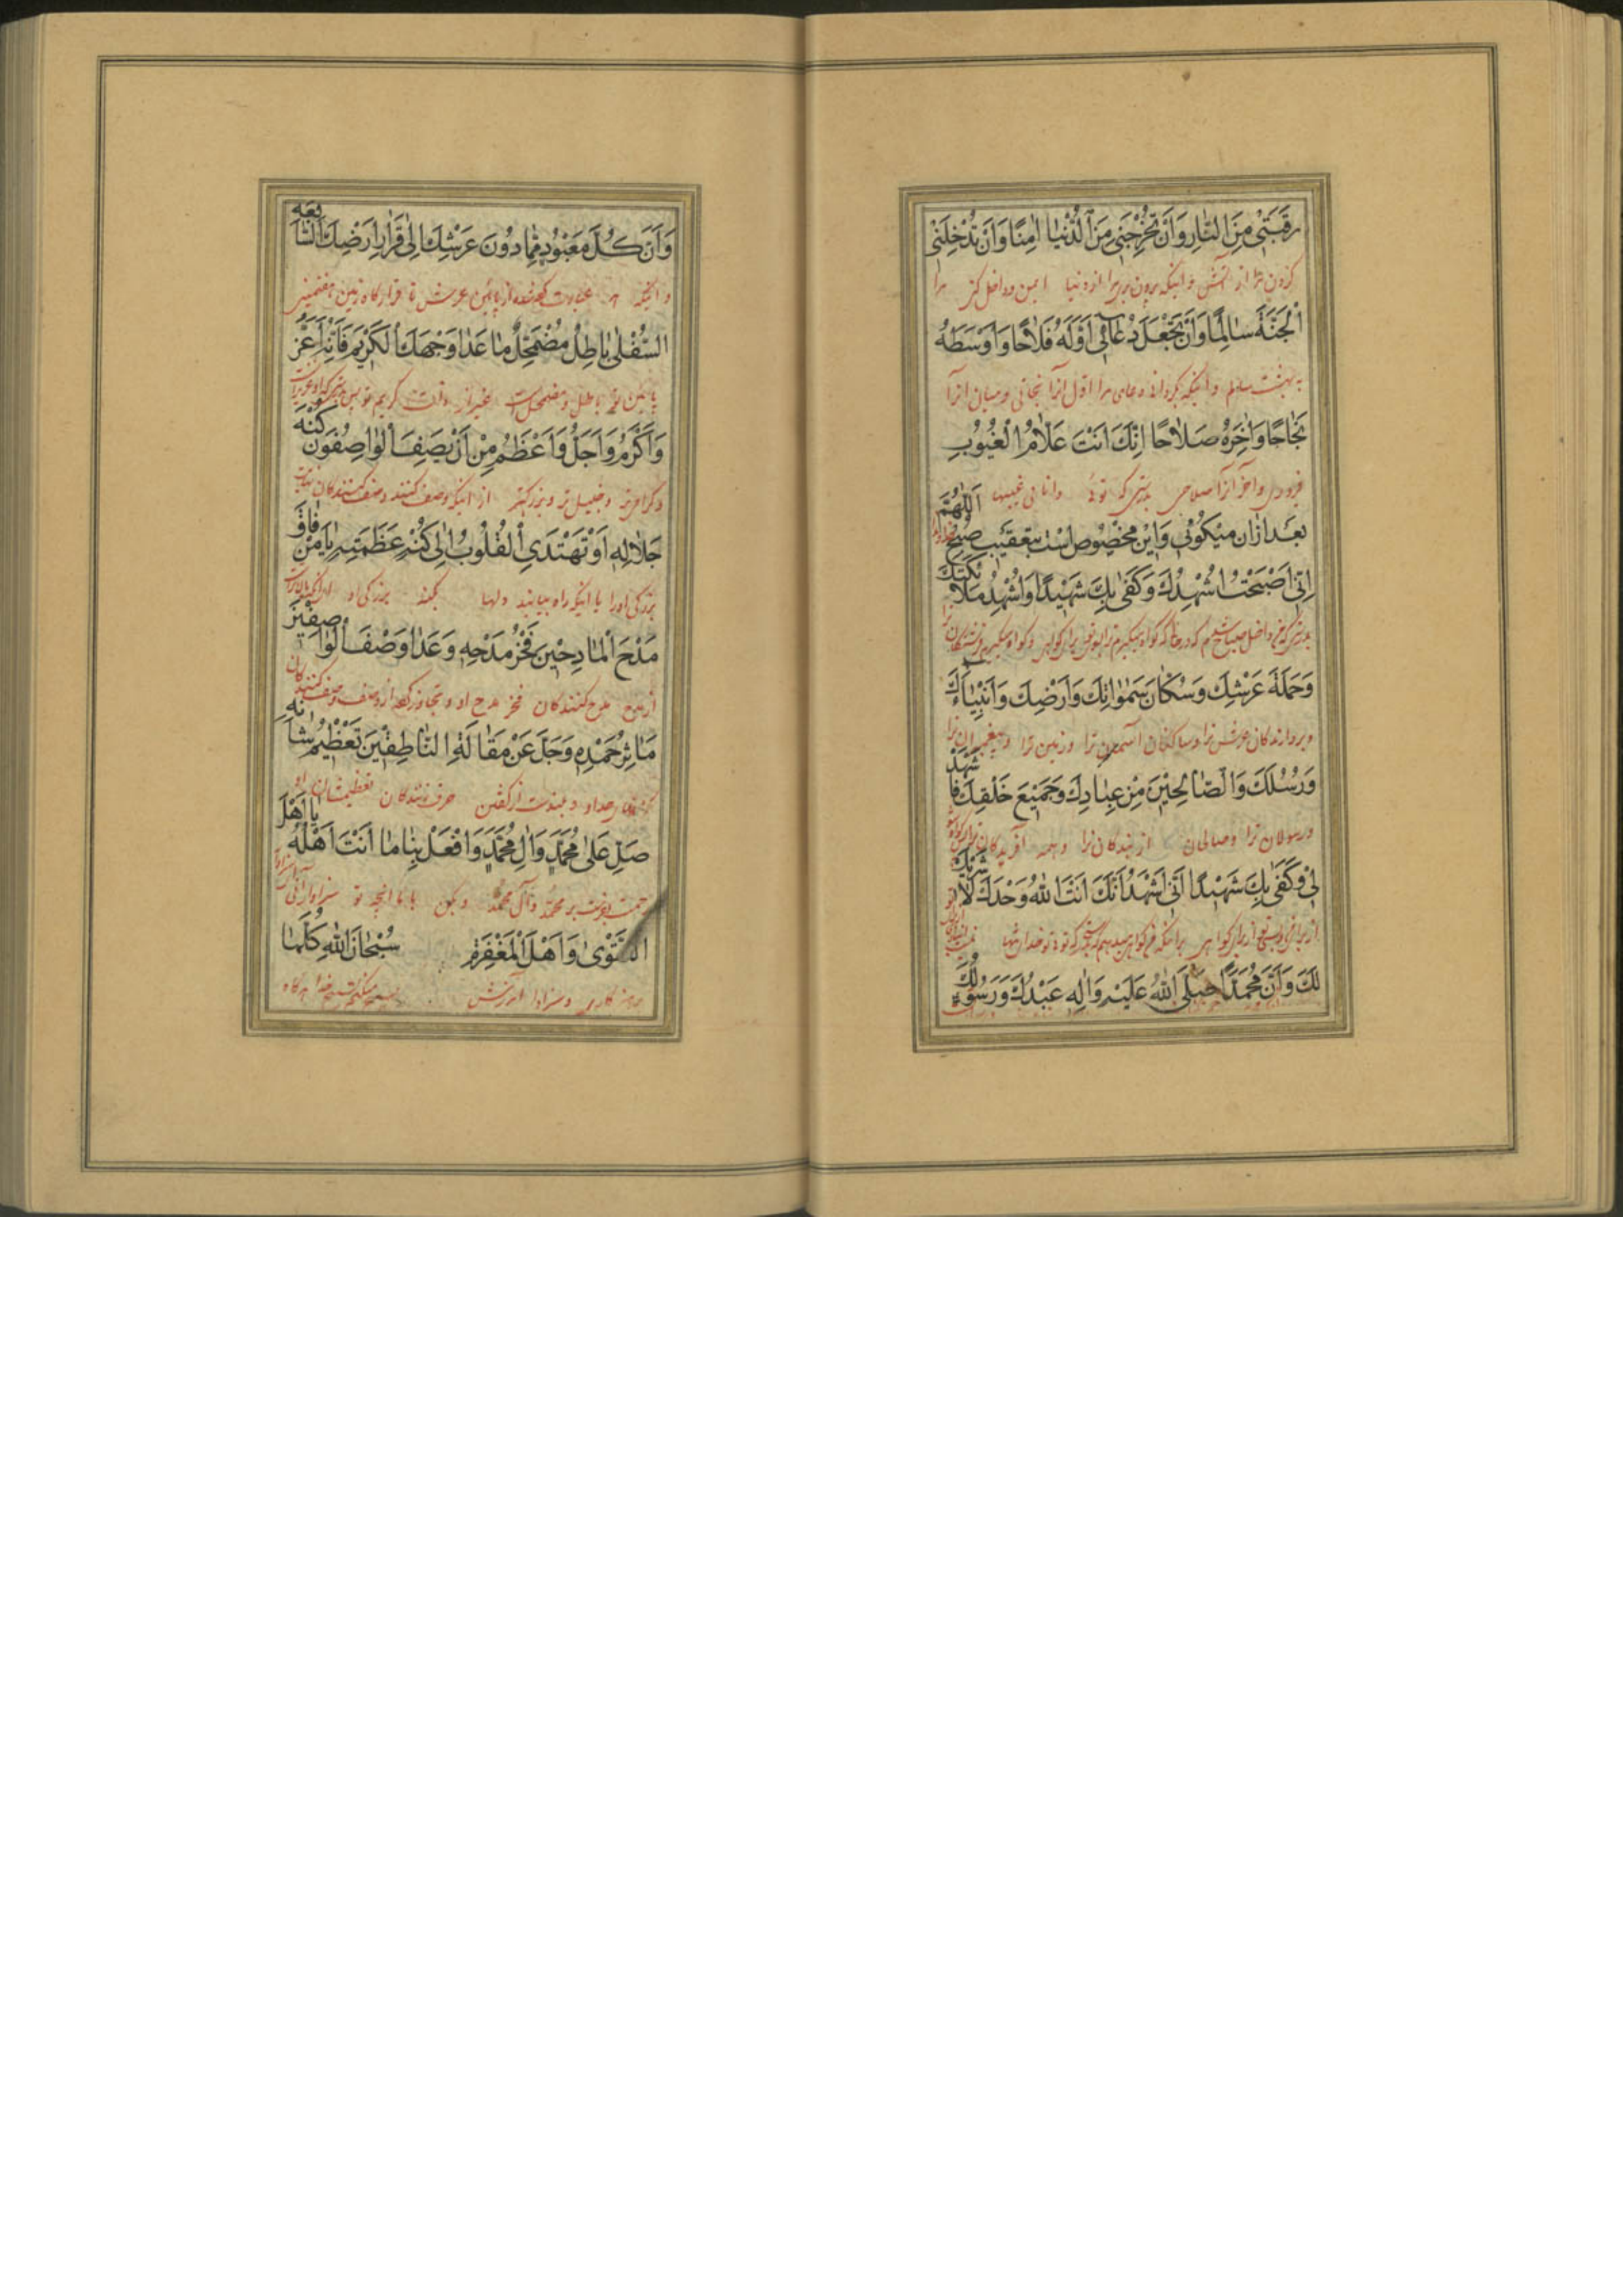 رَقَبَتِي مِنَ النّارِ وَاَنْ تُخْرِجَنِي مِنَ الدُّنْيا امِنًا وَاَنْ تُدْخِلَنِي
كردن مرا از آتش و اینکه بیرون بری مرا از دنیا ایمن و داخل کنی مرا
الْجَنَّةَ سالِمًا وَاَنْ تَجْعَلَ دُعآئِي اَوَّلَهُ فَلاحًا وَاَوْسَطَهُ
به بهشت سالم و اینکه بگردانی دعای مرا اول آنرا نجاتی و میان آنرا
نَجاحًا وَاخِرَهُ صَلاحًا اِنَّكَ اَنْتَ عَلّامُ الْغُيُوبِ
فیروزی و آخر آنرا صلاحی بدرستی که توئی دانای غیبها
بعد ازان میکوئی واین مخصوص است بتعقیب صبح اَللّهُمَّ
اِنِّي اَصْبَحْتُ اُشْهِدُكَ وَكَفى بِكَ شَهِيدًا وَاُشْهِدُ مَلائِكَتَكَ
وَحَمَلَةَ عَرْشِكَ وَسُكّانَ سَمواتِكَ وَاَرْضِكَ وَاَنْبِياءَكَ
و بردارندکان عرش ترا و ساکنان آسمان ترا و زمین ترا و پیغمبران ترا
وَرُسُلَكَ وَالصّالِحِينَ مِنْ عِبادِكَ وَجَمِيعَ خَلْقِكَ فَاشْهَدْ
و رسولان ترا و صالحان از بندکان ترا و همه آفریدکان ترا
لِي وَكَفى بِكَ شَهِيدًا اَنِّي اَشْهَدُ اَنَّكَ اَنْتَ اللهُ وَحْدَكَ لا شَرِيكَ
لَكَ وَاَنَّ مُحَمَّدًا صَلَّى اللهُ عَلَيْهِ وَالِهِ عَبْدُكَ وَرَسُولُكَ
وَاَنَّ كُلَّ مَعْبُودٍ مِمّا دُونَ عَرْشِكَ اِلى قَرارِ اَرْضِكَ السّابِعَةِ
و اینکه هر عبادت کرده شده از پائین عرش تا قرارکاه زمین هفتمین
السُّفْلى باطِلٌ مُضْمَحِلٌّ ما عَدا وَجْهَكَ الْكَرِيمَ فَاِنَّهُ اَعَزُّ
باطل و مضمحل است غیر از ذات کریم تو
وَاَكْرَمُ وَاَجَلُّ وَاَعْظَمُ مِنْ اَنْ يَصِفَ الْواصِفُونَ كُنْهَ
و کرامی تر و جلیل تر و بزرکتر از اینکه وصف کنند وصف کنندکان نهایت
جَلالِهِ اَوْ تَهْتَدِيَ الْقُلُوبُ اِلى كُنْهِ عَظَمَتِهِ يا مَنْ فاقَ
بزرکی او را یا اینکه راه بیابند دلها بکنه بزرکی او
مَدْحَ الْمادِحِينَ فَخْرُ مَدْحِهِ وَعَدا وَصْفَ الْواصِفِينَ
از مدح مدح کنندکان فخر مدح او و تجاوز کرده از وصف وصف کنندکان
مَاثِرُ حَمْدِهِ وَجَلَّ عَنْ مَقالَةِ النّاطِقِينَ تَعْظِيمُ شَأنِهِ
حمد او و بلند است از کفتن حرف زنندکان تعظیم شان او
صَلِّ عَلى مُحَمَّدٍ وَالِ مُحَمَّدٍ وَافْعَلْ بِنا ما اَنْتَ اَهْلُهُ يا اَهْلَ
رحمت بفرست بر محمد و آل محمد و بکن با ما انچه تو سزاوار آنی
التَّقْوى وَاَهْلَ الْمَغْفِرَةِ سُبْحانَ اللهِ كُلَّما
و سزاوار آمرزش